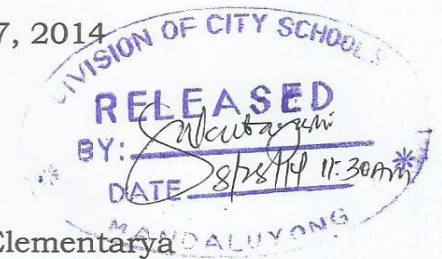 7, 2014
DIVISION OF CITY SCHOOLS
RELEASED
BY:
DATE 8/28/14 11:30AM
MANDALUYONG
Elementarya